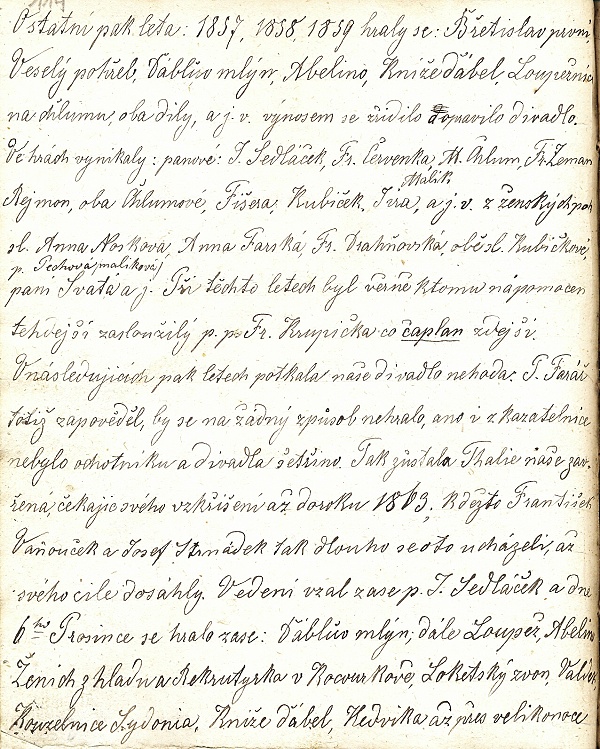 114
Ostatní pak leta: 1857, 1858, 1859 hraly se: Břetislav první,
Veselý pohřeb, Ďáblův mlýn, Abelino, Kníže ďábel, Loupežníci
na chlumu, oba díly, a j. v. výnosem se zřídilo dopravilo divadlo.
Ve hrách vynikaly: panové: J. Sedláček, Fr. Červenka, M. Chlum, Fr. Zeman
Málik
Rejmon, oba Chlumové, Fišera, Kubíček, Sva, a j. v. z ženských pak
sl. Anna Noskova, Anna Farská, Fr. Drahňovská, obě sl. Kubíčkové,
p. Pechová, maliková
paní Svata a j. Při těchto letech byl věrně k tomu nápomocen
tehdejší zasloužilý p. p. Fr. Krupička co caplan zdejší.
V následujících pak letech potkala naše divadlo nehoda. P. Farář
totiž zapověděl, by se na žádný způsob nehralo, ano i z kazatelnice
nebylo ochotníku a divadla šetřino. Tak zůstala Thalie naše zav-
řená, čekajíc svého vzkříšení až do roku 1863, kdežto František
Vaňouček a Josef Strnádek tak dlouho se o to ucházeli, až
svého cíle dosáhly. Vedení vzal zase p. J. Sedláček a dne
6ho Prosince se hralo zase: Ďáblův mlýn, dále Loupež, Abelino
Ženich z hladu a Rekrutyrka v Kocourkově, Loketský zvon, Valdo,
Kouzelnice Sydonia, Kníže ďábel, Hedvika, až přes velikonoce